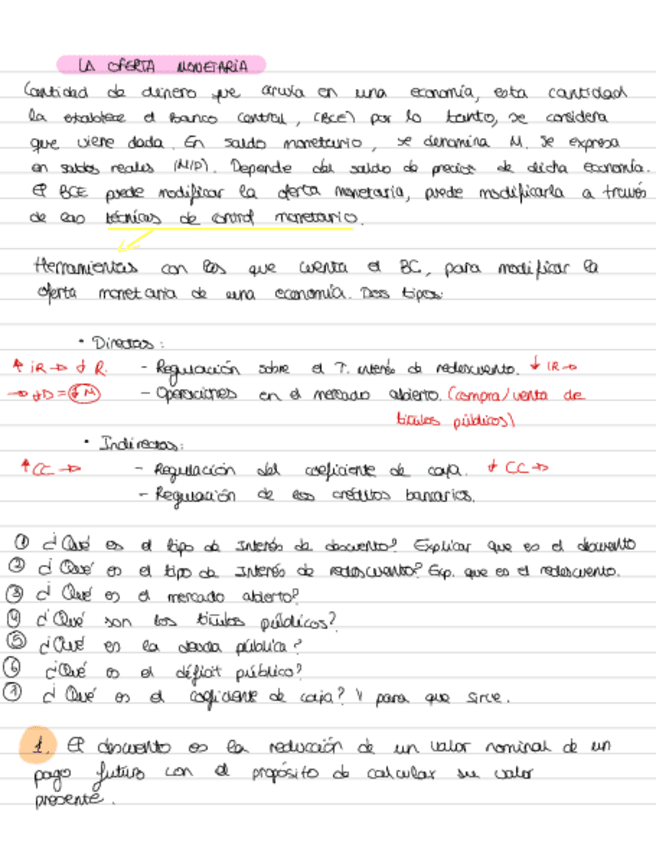 LA OFERTA MONETARIA
Cantidad de dinero que circula en una economía, esta cantidad
la establece el Banco Central, (BCE) por lo tanto, se considera
que viene dada. En saldo monetario, se denomina M. Se expresa
en saldos reales (M/P). Depende del saldo de precios de dicha economía.
El BCE puede modificar la oferta monetaria, puede modificarla a través
de las técnicas de control monetario.
Herramientas con las que cuenta el BC, para modificar la
oferta monetaria de una economía. Dos tipos:
• Directas:
↑ iR → ↓ R. - Regulación sobre el T. interés de redescuento. ↓ IR →
→ ↓D = ↓M - Operaciones en el mercado abierto. (compra/venta de
títulos públicos)
• Indirectas:
↑ CC → - Regulación del coeficiente de caja. ↓ CC →
- Regulación de los créditos bancarios.
① ¿Qué es el tipo de Interés de descuento? Explicar que es el descuento
② ¿Qué es el tipo de Interés de redescuento? Exp. que es el redescuento.
③ ¿Qué es el mercado abierto?
④ ¿Qué son los títulos públicos?
⑤ ¿Qué es la deuda pública?
⑥ ¿Qué es el déficit público?
⑦ ¿Qué es el coeficiente de caja? Y para que sirve.
1. El descuento es la reducción de un valor nominal de un
pago futuro con el propósito de calcular su valor
presente.